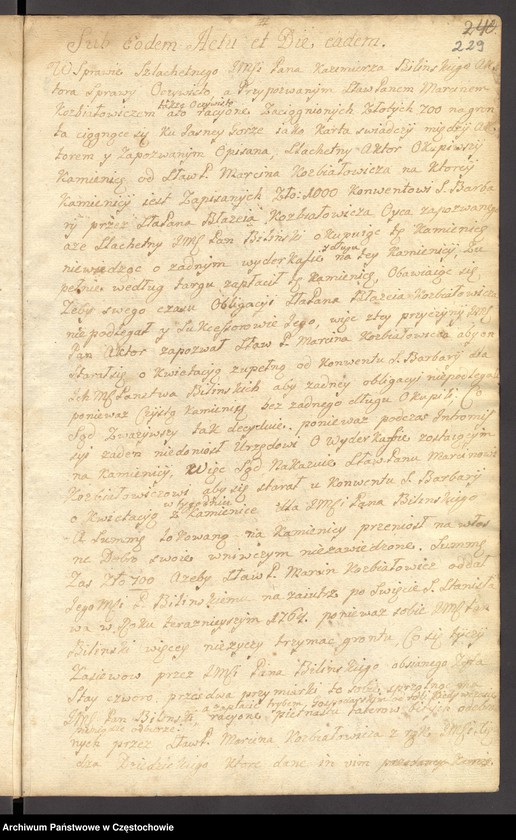 240.
229
Sub Eodem Actu et Die eadem.
W Sprawie Szlachetnego JMSi Pana Kazimierza Bilinskiego Ak
tora Sprawy Oczywisto, a Przypozwanym Sław Panem Marcinem
Kozbiałowiczem także Oczywisto racyone Zaciągnionych Złotych 700 na grun
ta ciągnące się ku Jasney Gorze iako Karta swiadczy między Ak
torem y Zapozwanym Opisana, Szlachetny Aktor Okupiwszy
Kamienicę od Sław P. Marcina Kozbiałowicza na Ktorey
Kamienicy iest Zapisanych Zło: 1000 Konwentowi S. Barba
ry przez Sła Pana Błazeia Kozbiałowicza Oyca zapozwanego
aże Slachetny JMS Pan Bilinski okupuiąc tę Kamienicę
niewiedząc o żadnym wyderkafie y długu na tey Kamienicy, Zu
pełnie według targu zapłacił tę Kamienicę, Obawiaiąc się,
Zeby swego czasu Obligacyi Sła Pana Błazeia Kozbiałowicza
niepodlegał y Sukcessorowie Jego, więc z tey przyczyny JMS
Pan Aktor zapozwał Sław P. Marcina Kozbiałowicza aby on
Starał się o Kwietacyą zupełną od Konwentu S. Barbary dla
Ich Mę Panstwa Bilinskich aby zadney obligacyi niepodlegali
poniewaz Czystą Kamienicę bez zadnego długu Okupili; Co
Sąd Zwazywszy tak decyduie. poniewaz podczas Intromis
syi zaden niedoniosł Urzędowi O Wyderkafie zostaiącym
na Kamienicy, Więc Sąd Nakazuie Sław Panu Marcinowi
Kozbiałowiczowi aby się starał u Konwentu S. Barbary
o Kwietacyą w tygodniu z Kamienice dla JMSi Pana Bilinskiego
A Summę Lokowaną na Kamienicy przeniosł na włas
ne Dobra swoie wniwczym niezawiedzione. Summę
Zas Zło 700 Azeby Sław P. Marcin Kozbiałowicz oddał
Jego MSi P. Bilinskiemu na zaiutrz po Swięcie S. Stanisła
wa w Roku terazniejszym 1764. poniewaz sobie JMS Pan
Bilinski więcey nieżyczy trzymac gruntu, Co się tyczy
Zasiewow przez JMSi Pana Bilinskiego obsianego Zyta
Stay czworo, przes dwa przymiarki to sobie sprzątnąc ma
JMS Pan Bilinski,
racyone, piętnastu talerow bitych odebra
nych przez Sław P. Marcina Kozbiałowicza z rąk JMSi
dza Dziedzickiego ktore dane in vim